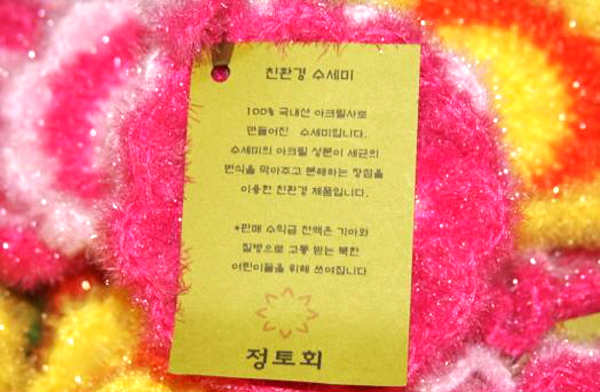 친환경 수세미
100% 국내산 아크릴사로
만들어진 수세미입니다.
수세미의 아크릴 성분이 세균의
번식을 막아주고 분해하는 장점을
이용한 친환경 제품입니다.
*판매 수익금 전액은 기아와
질병으로 고통 받는 북한
어린이들을 위해 쓰여집니다
정토회